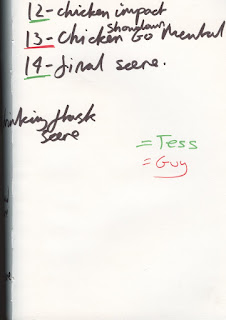 12-chicken impact
showdown
13-Chicken Go Mental
14-final scene.
flask
scene
=Tess
=Guy